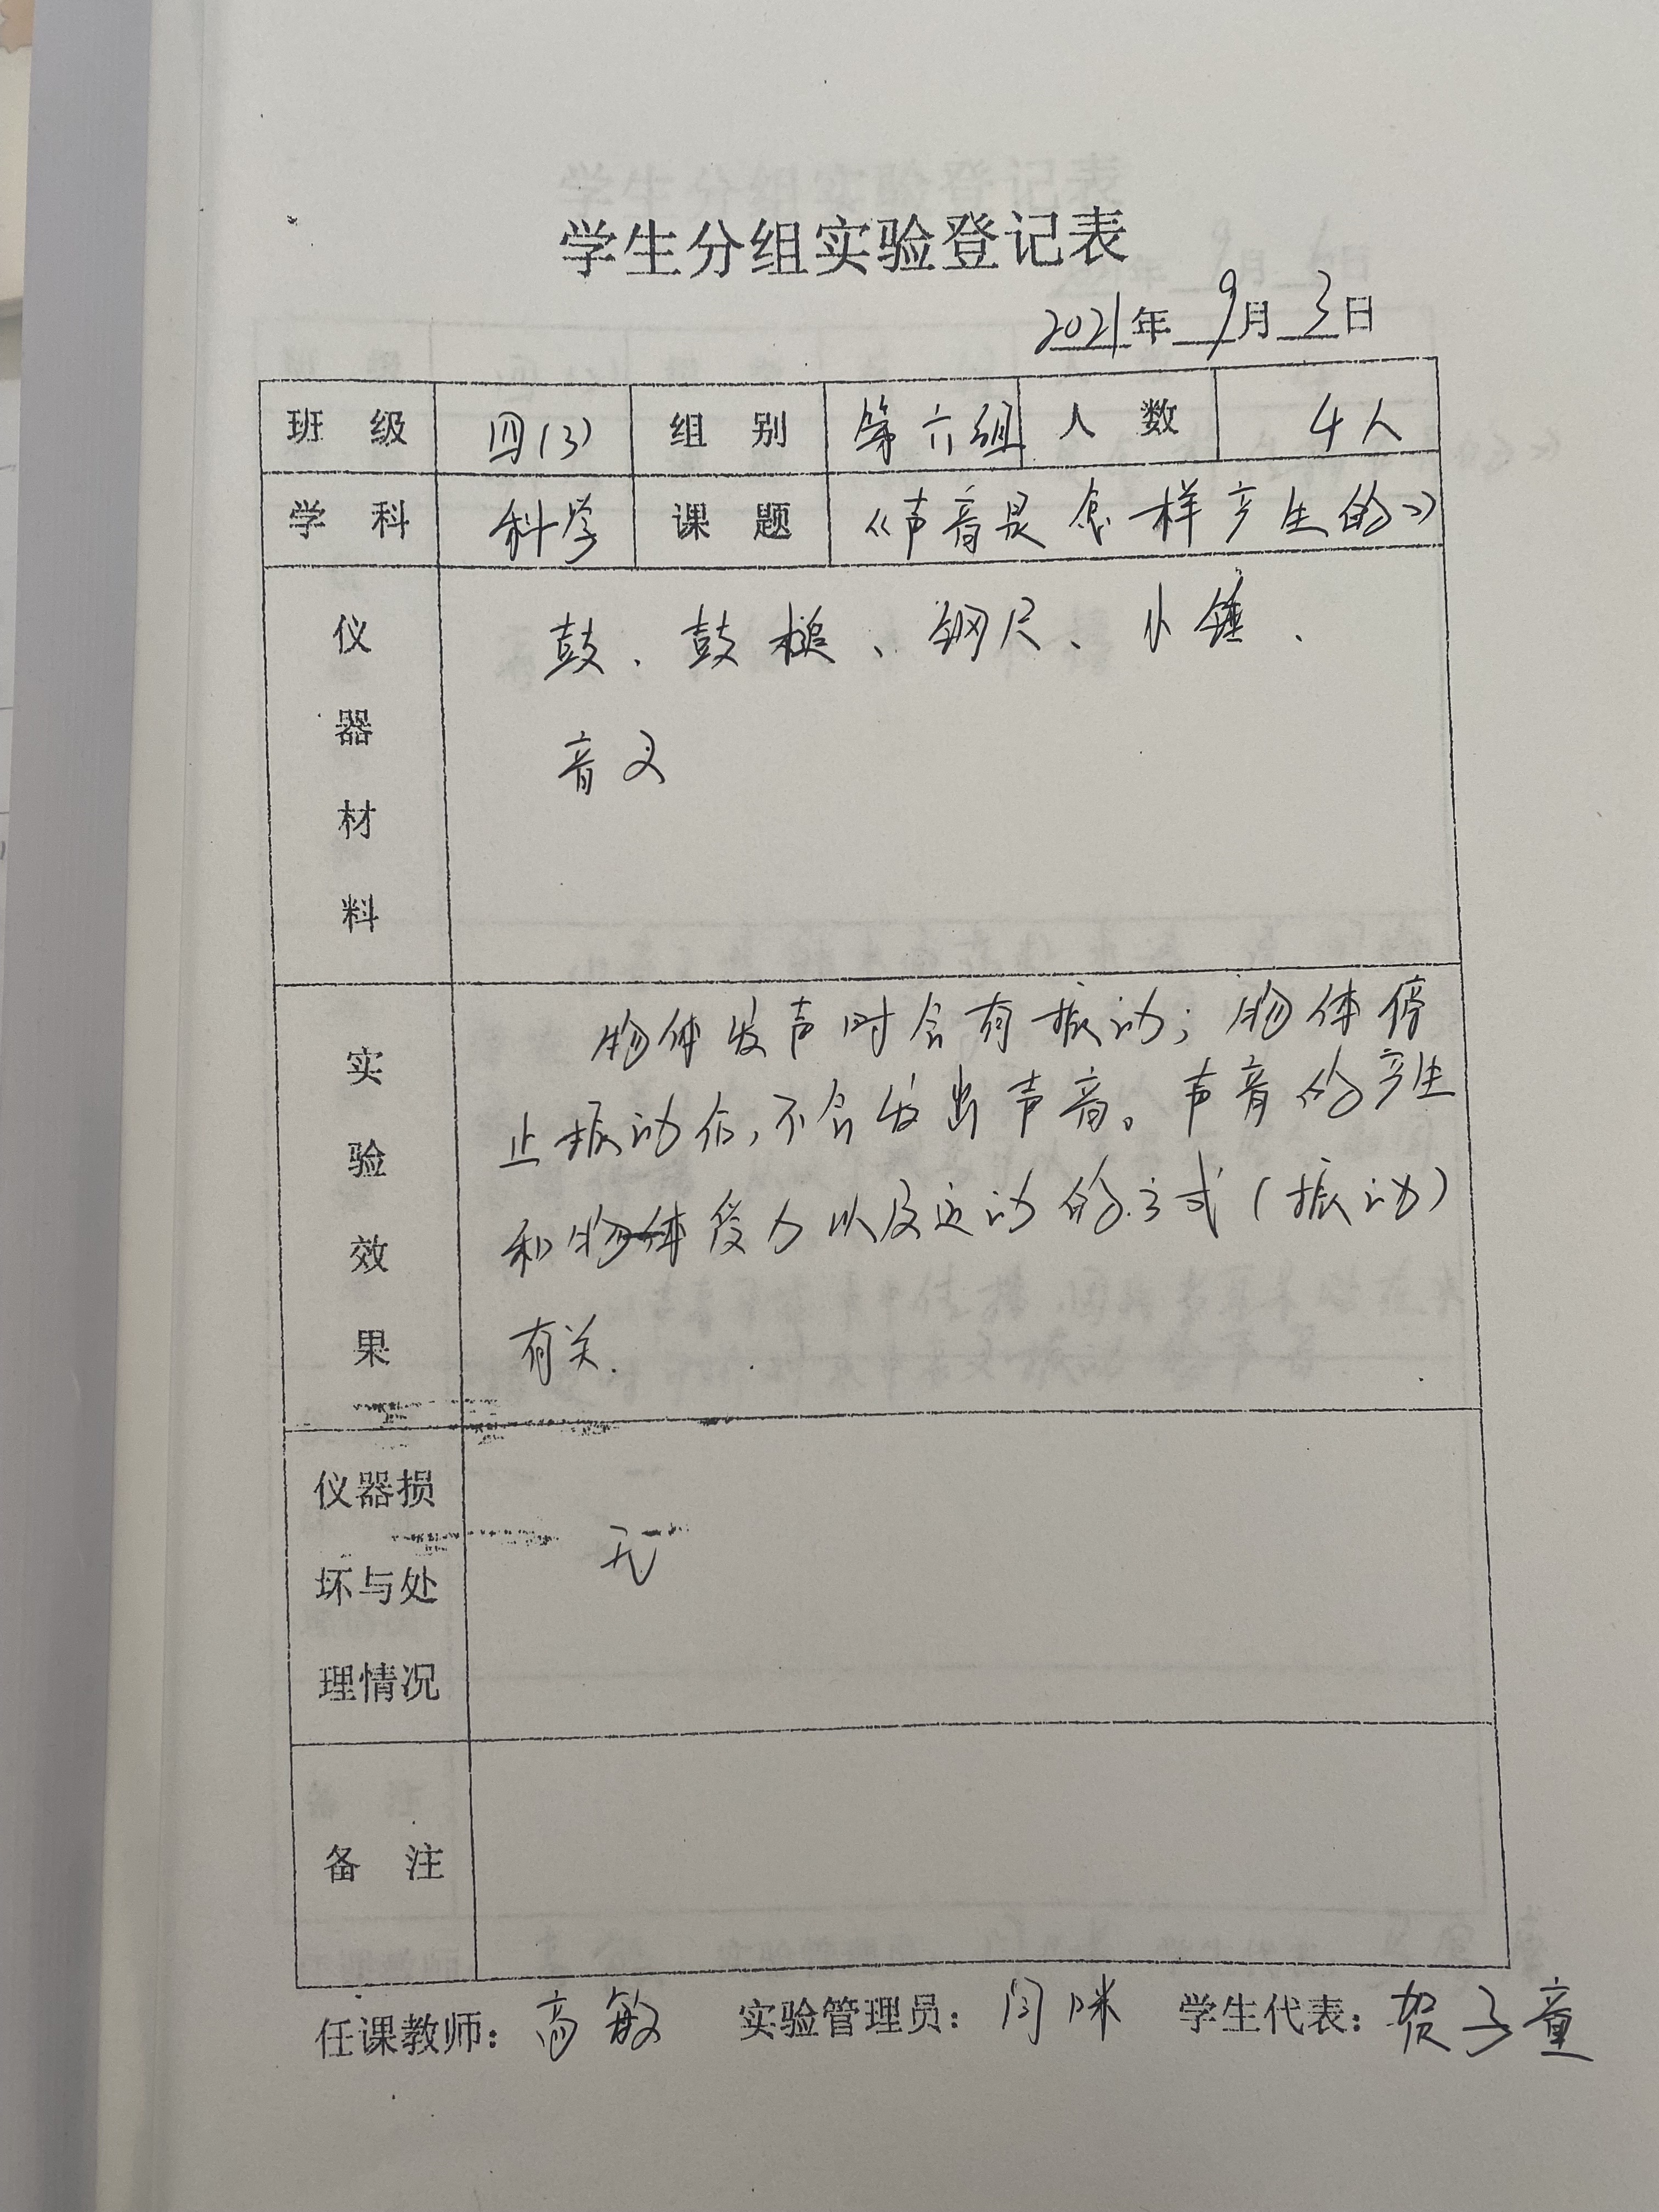 学生分组实验登记表
2021年9月3日
班级 四(3) 组别 第六组 人数 4人
学科 科学 课题 《声音是怎样产生的》
仪器材料 鼓、鼓槌、钢尺、小锤、
音叉
实验效果 物体发声时会有振动；物体停
止振动后，不会发出声音。声音的产生
和物体受力以及运动的方式（振动）
有关.
仪器损
坏与处 无
理情况
备注
任课教师：高敏 实验管理员：闫咪 学生代表：贺子童